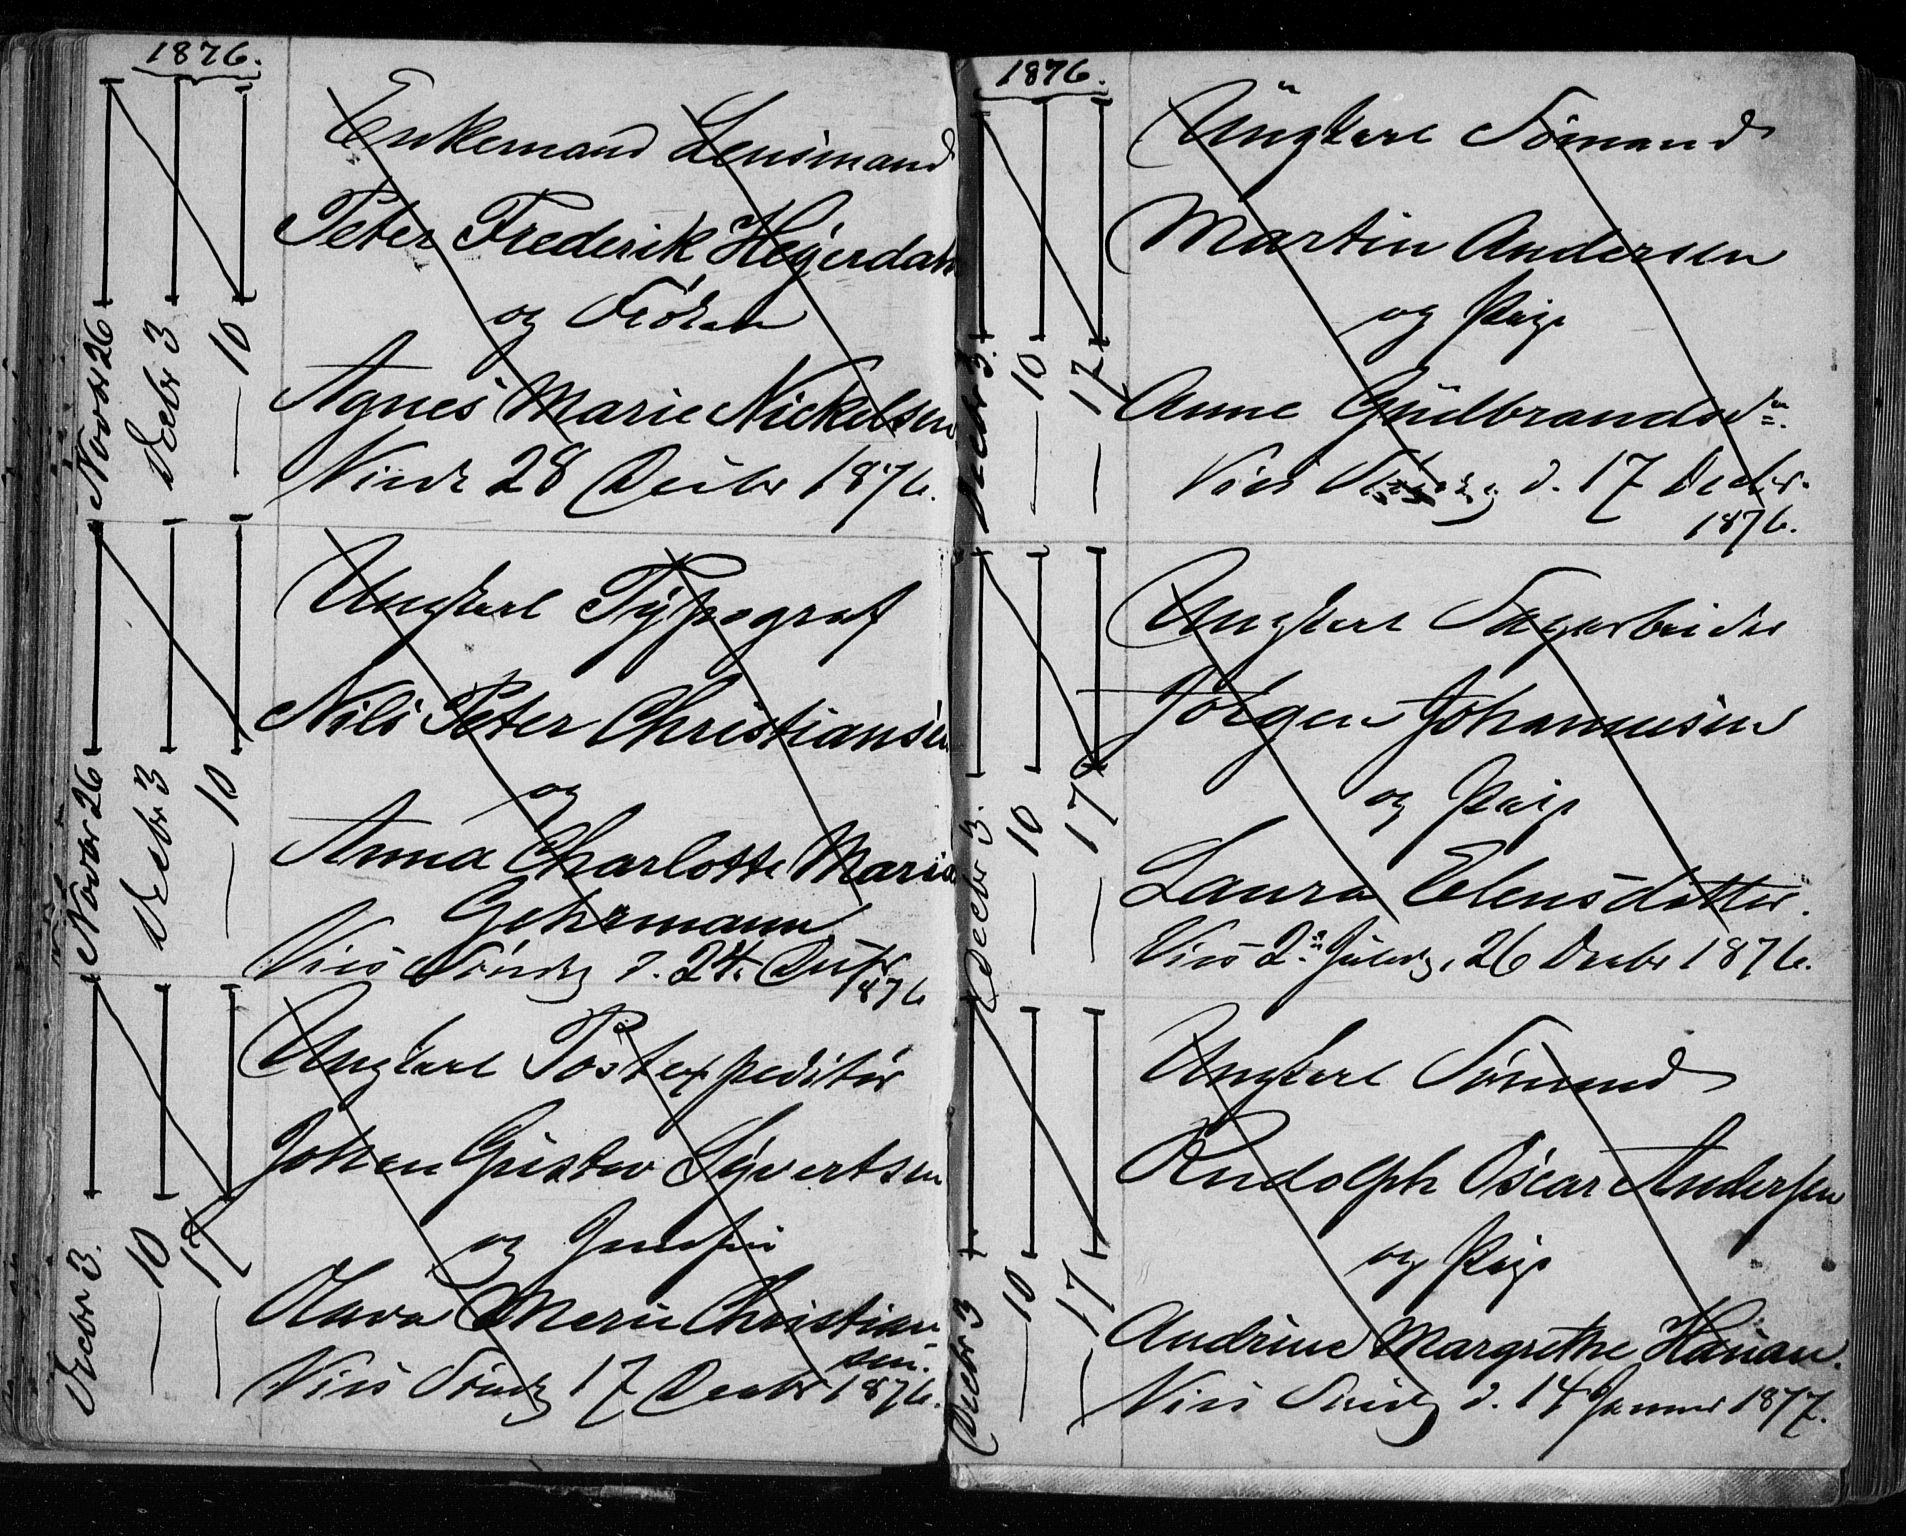 1876.
Novbr 26
Decbr 3
— 10
Enkemand Lensmand
Peter Frederik Heyerdahl
og Frøken
Agnes Marie Nickelsen
Viede 28 Decbr 1876.
Novbr 26
Decbr 3
— 10
Ungkarl Typograf
Nils Peter Christiansen
og
Anna Charlotte Marie
Gehrmann
Vies Søndg d. 24. Decbr
1876
Decbr 3.
— 10
— 17
Ungkarl Postexpeditør
Johan Gustav Syvertsen
og Jomfru
Olava Marie Christian
sen.
Vies Søndg 17 Decbr 1876.
1876.
Decbr 3.
— 10
— 17
Ungkarl Sømand
Martin Andersen
og Pige
Anne Gudbrandsdn.
Vies d. 17 Decbr.
1876.
Decbr 3.
— 10
— 17
Ungkarl Sagarbeider
Jørgen Johannesen
og Pige
Laura Elensdatter.
Vies 2n Juledg, 26 Decbr 1876.
Decbr 3
— 10
— 17
Ungkarl Sømand
Rudolph Oscar Andersen
og Pige
Andrine Margrethe Hansen.
Vies Søndg d. 14 Januar 1877.